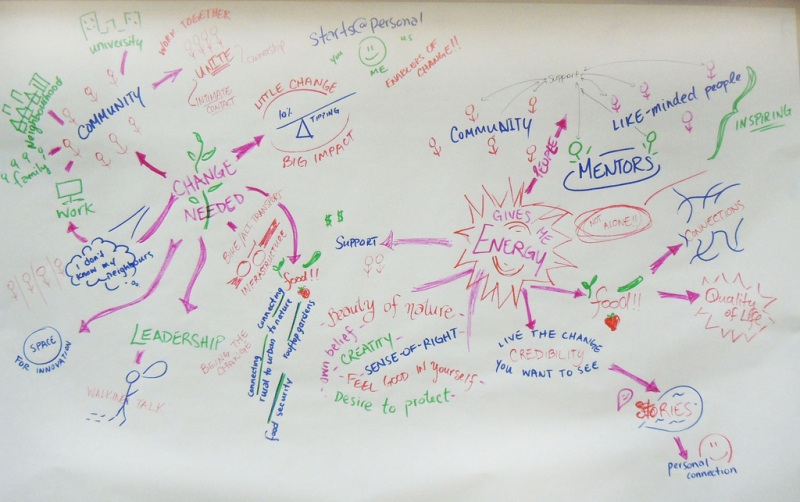 university
WORK TOGETHER
UNITE?
ownership
INTIMATE
CONTACT
Neighbourhood
COMMUNITY
family
work
I don't
know my
neighbours
starts@personal
you
us
ME
ENABLERS OF
CHANGE!!
LITTLE CHANGE
10%
TIPPING
BIG IMPACT
CHANGE
NEEDED
BIKE/ALT TRANSPORT
INFRASTRUCTURE
food!!
connecting
to nature
rooftop gardens
connecting
rural to urban
food security
SPACE
FOR INNOVATION
LEADERSHIP
BEING THE
CHANGE
WALKING TALK
Support
COMMUNITY
PEOPLE
LIKE-minded people
INSPIRING
MENTORS
GIVES ME
ENERGY
NOT ALONE!!
CONNECTIONS
$ $
SUPPORT
food!!
Quality
of Life!
- Beauty of nature -
- own belief -
CREATITY
- SENSE-OF-RIGHT -
- FEEL GOOD IN YOURSELF -
Desire to protect -
LIVE THE CHANGE
CREDIBILITY
YOU WANT TO SEE
STORIES
personal
connection